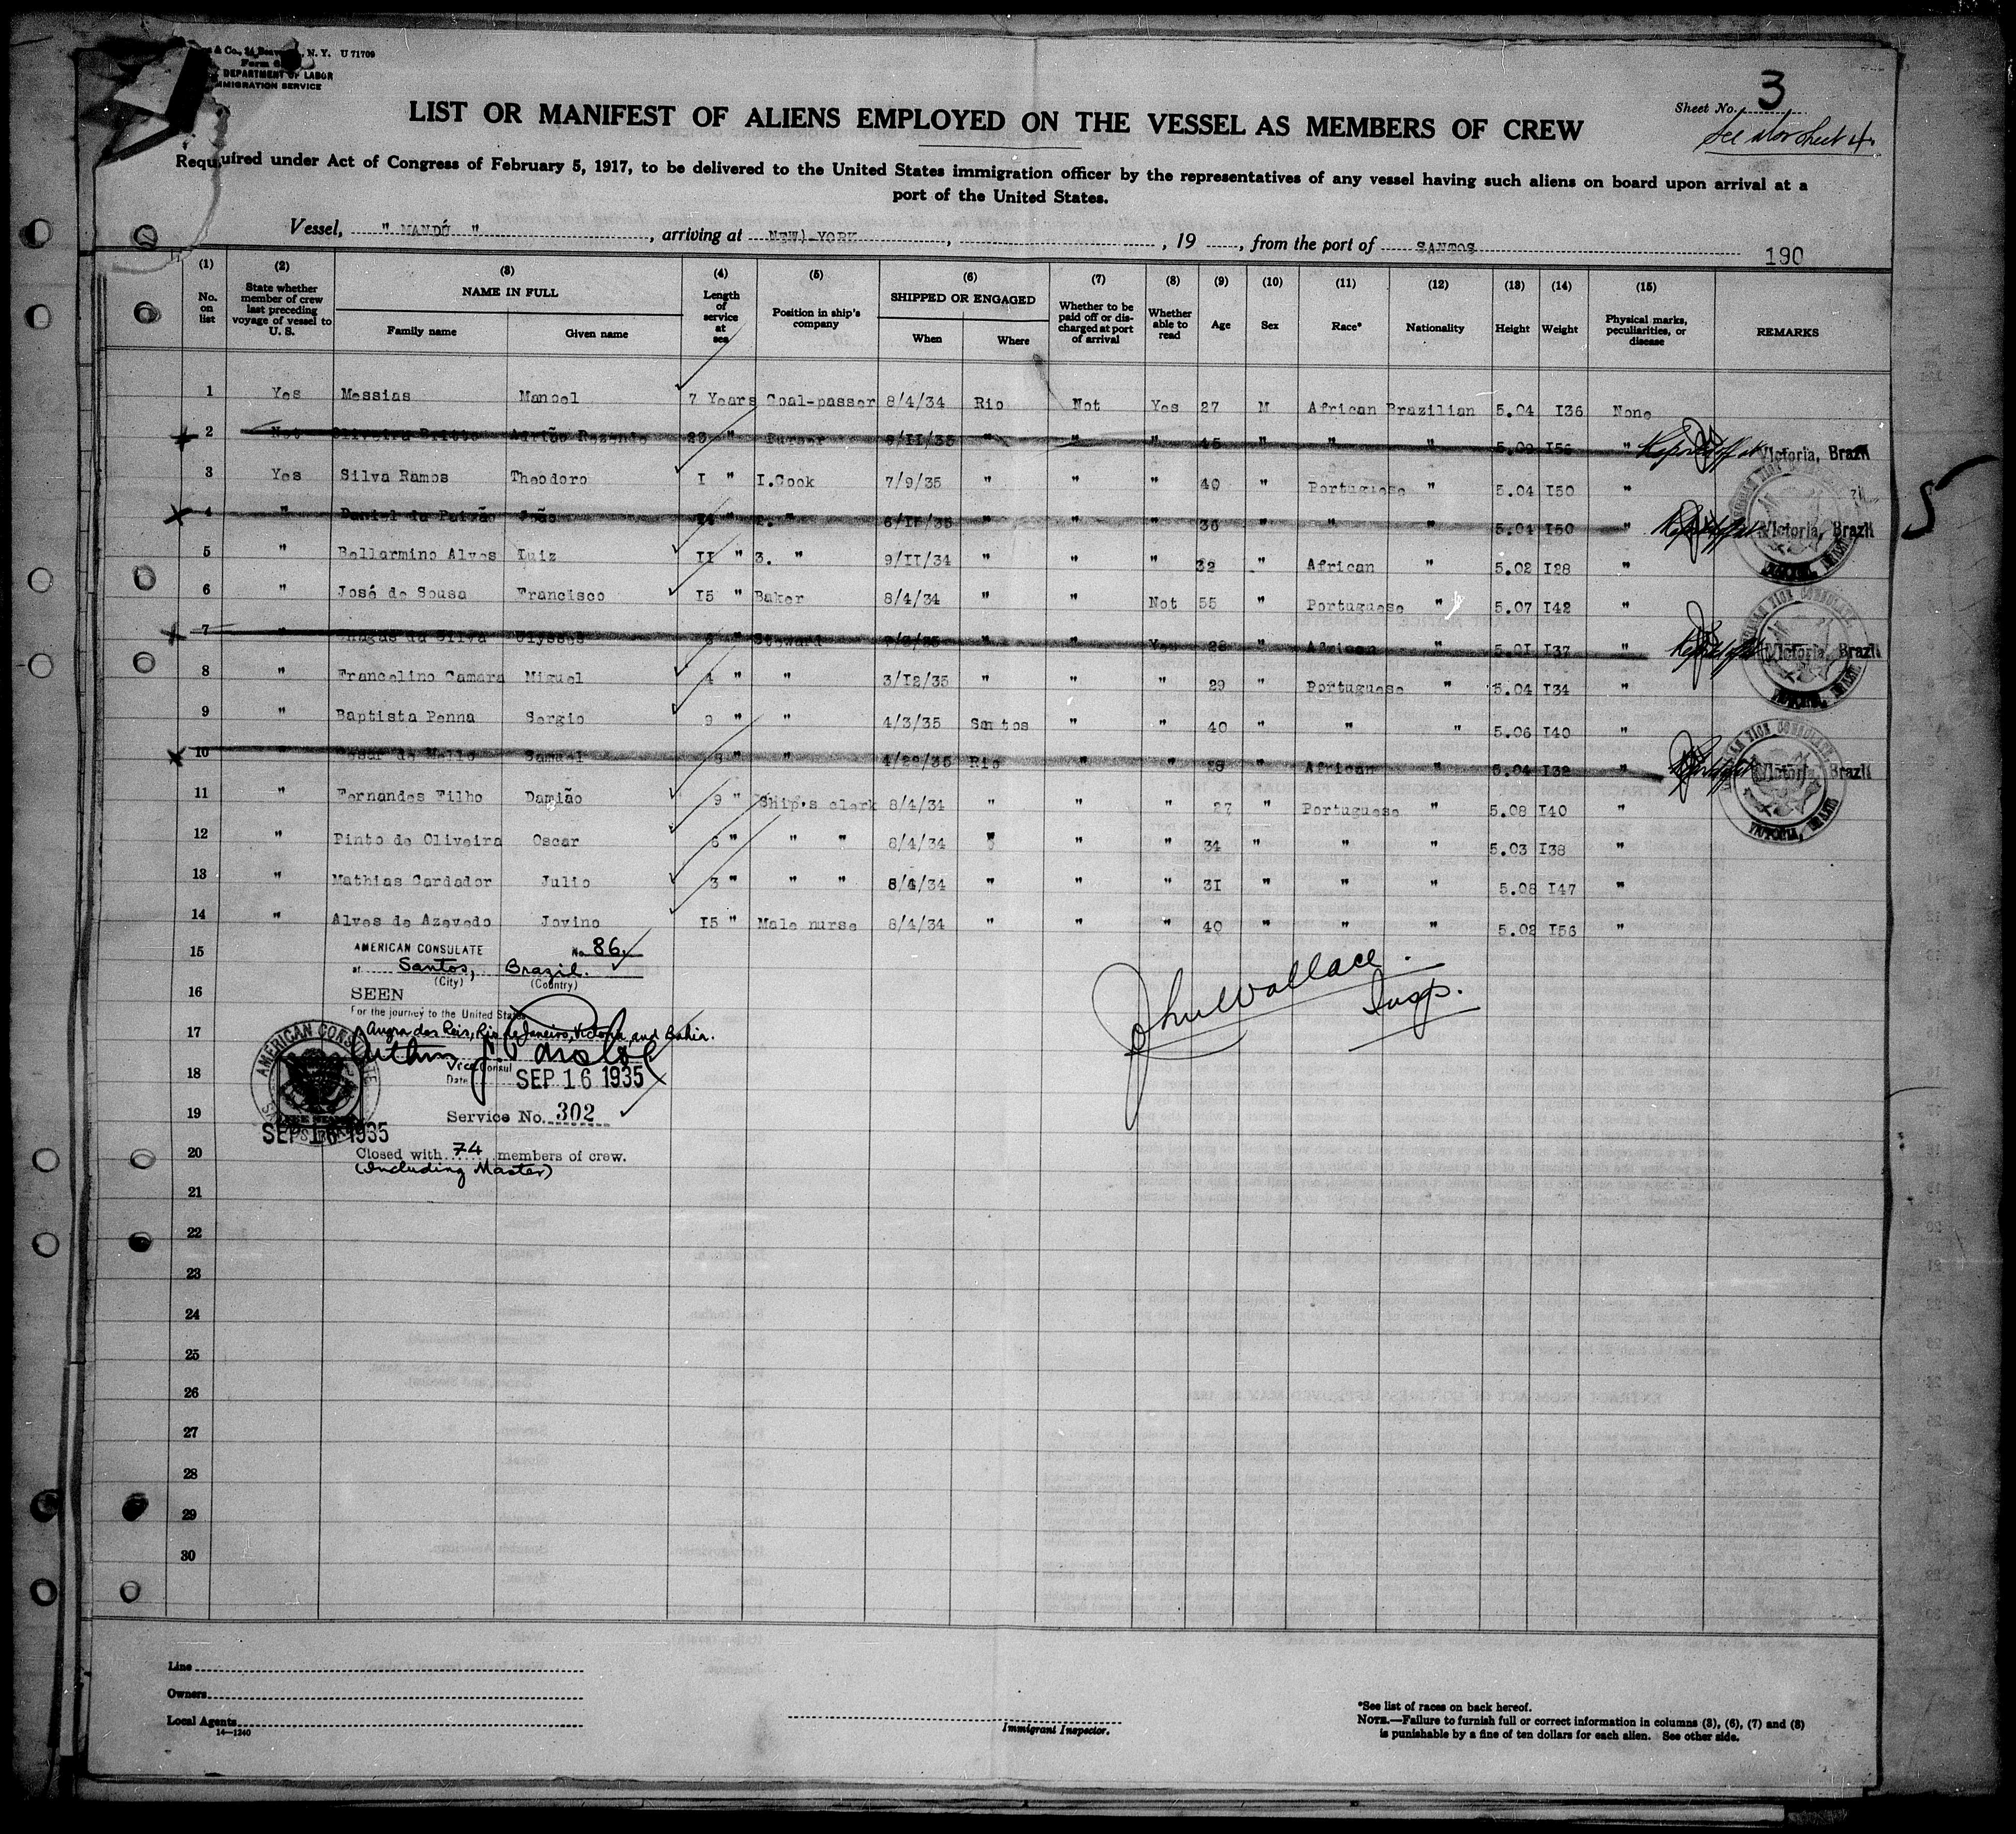 & Co., N. Y. U 71709
Form
DEPARTMENT OF LABOR
IMMIGRATION SERVICE
Sheet No. 3
See also sheet 4.
LIST OR MANIFEST OF ALIENS EMPLOYED ON THE VESSEL AS MEMBERS OF CREW
Required under Act of Congress of February 5, 1917, to be delivered to the United States immigration officer by the representatives of any vessel having such aliens on board upon arrival at a
port of the United States.
Vessel, " MANDÚ " , arriving at NEW YORK , , 19 , from the port of SANTOS 190
(1) (2) (3) (4) (5) (6) (7) (8) (9) (10) (11) (12) (13) (14) (15)
No. on list State whether member of crew last preceding voyage of vessel to U. S. NAME IN FULL Family name Given name Length of service at sea Position in ship's company SHIPPED OR ENGAGED When Where Whether to be paid off or discharged at port of arrival Whether able to read Age Sex Race* Nationality Height Weight Physical marks, peculiarities, or disease REMARKS
1 Yes Messias Manoel 7 Years Coal-passer 8/4/34 Rio Not Yes 27 M African Brazilian 5.04 I36 None
2 Not Oliveira Britto Adrião Rezende 29 " Purser 8/II/35 " " " 45 " " " 5.09 I56 " Victoria, Brazil
3 Yes Silva Ramos Theodoro I " I.Cook 7/9/35 " " " 40 " Portuguese " 5.04 I50 "
4 " Daniel da Paixão João " 2. " 6/II/35 " " " 36 " " " 5.04 I50 " Victoria, Brazil
5 " Bellarmino Alves Luiz II " 3. " 9/II/34 " " " 32 " African " 5.02 I28 "
6 " José de Sousa Francisco I5 " Baker 8/4/34 " " Not 55 " Portuguese " 5.07 I42 "
7 " Chagas da Silva Ulysses " Steward 7/8/35 " " Yes 28 " African " 5.0I I37 " Victoria, Brazil
8 " Francelino Camara Miguel 4 " " 3/I2/35 " " " 29 " Portuguese " 5.04 I34 "
9 " Baptista Penna Sergio 9 " " 4/3/35 Santos " " 40 " " " 5.06 I40 "
10 " Cesar de Mello Samuel 8 " " 4/22/35 Rio " " 28 " African " 5.04 I32 " Victoria, Brazil
11 " Fernandes Filho Damião 9 " Ship's clerk 8/4/34 " " " 27 " Portuguese " 5.08 I40 "
12 " Pinto de Oliveira Oscar 6 " " " 8/4/34 " " " 34 " " " 5.03 I38 "
13 " Mathias Cardador Julio 3 " " " 8/4/34 " " " 3I " " " 5.08 I47 "
14 " Alves de Azevedo Jovino I5 " Male nurse 8/4/34 " " " 40 " " " 5.02 I56 "
5
15
AMERICAN CONSULATE No. 86
at Santos, Brazil.
(City) (Country)
16
SEEN
For the journey to the United States
17
Angra dos Reis, Rio de Janeiro, Victoria, and Bahia.
Vice Consul
18
Date SEP 16 1935
AMERICAN CONSULATE
19
Service No. 302
SEP 16 1935
20
Closed with 74 members of crew.
(Including Master)
John Wallace.
Insp.
21
22
23
24
25
26
27
28
29
30
Line
Owners
Local Agents
14—1240
Immigrant Inspector.
*See list of races on back hereof.
NOTE.—Failure to furnish full or correct information in columns (3), (6), (7) and (8)
is punishable by a fine of ten dollars for each alien. See other side.